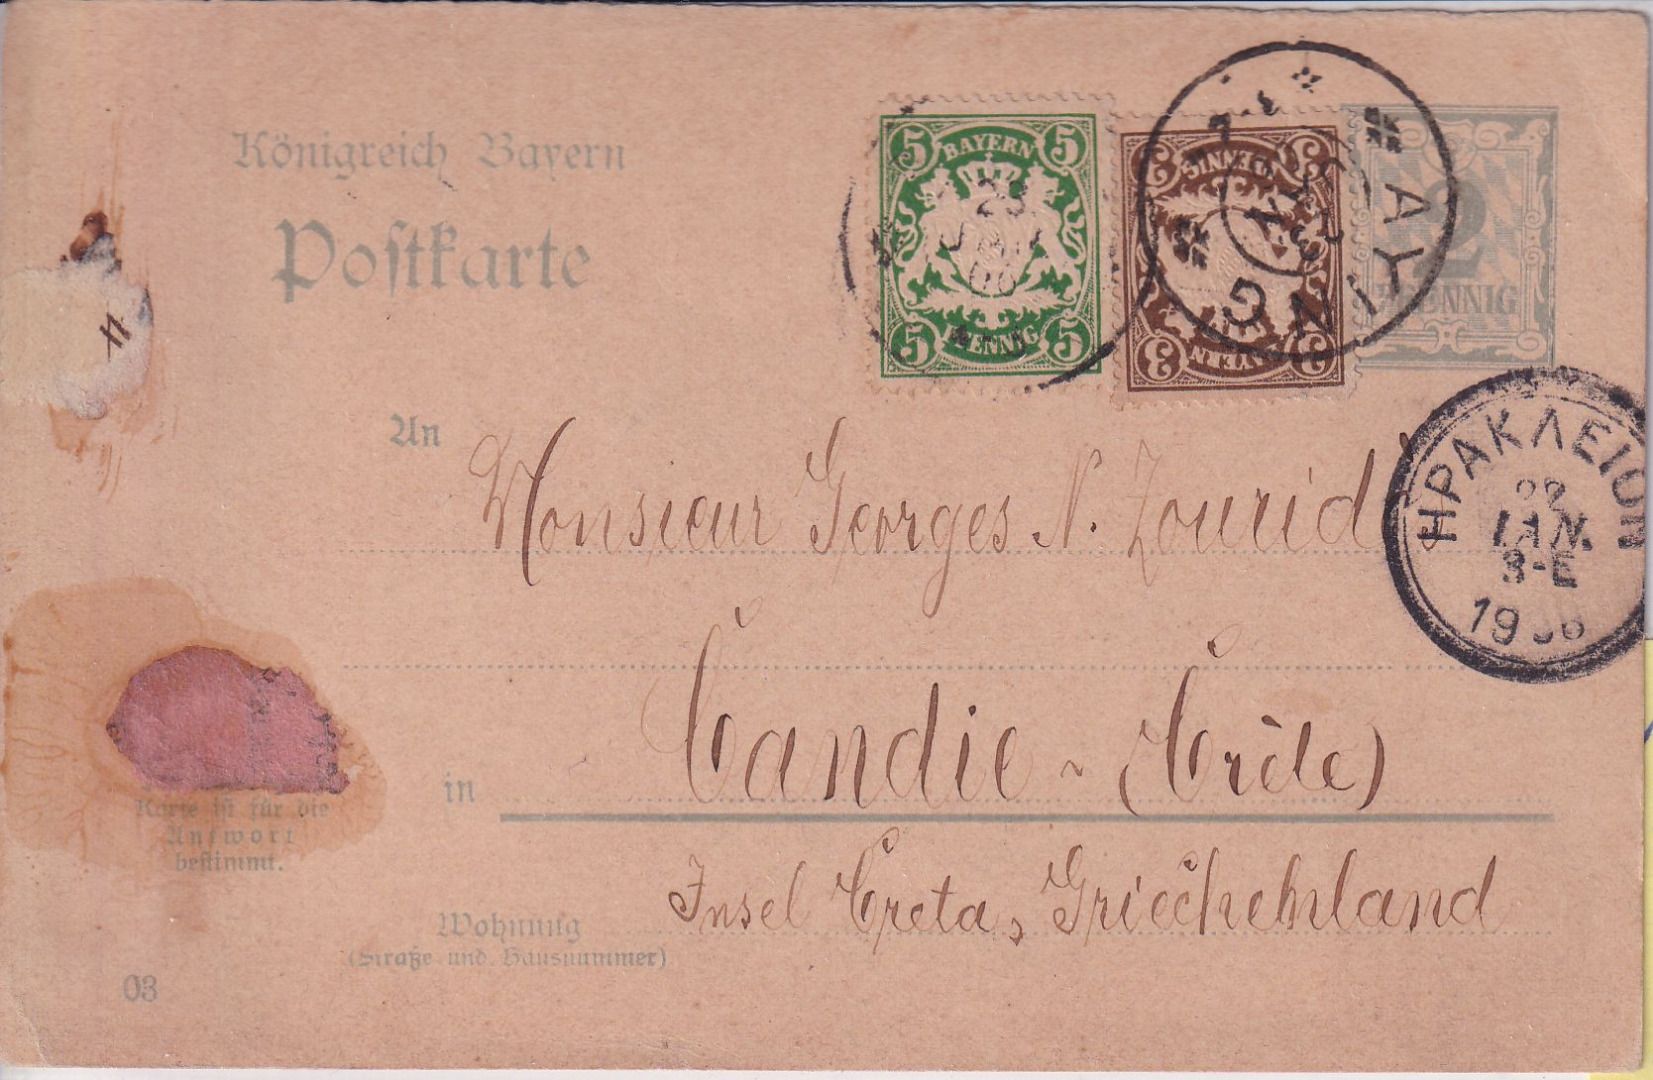 Königreich Bayern
Postkarte
5 BAYERN 5
5 PFENNIG 5
3 PFENNIG 3
3 BAYERN 3
2
PFENNIG
ΗΡΑΚΛΕΙΟΝ
22
ΙΑΝ.
3-Ε
An
Monsieur Georges N. Zourid
Candie - (Crète)
in
Karte ist für die
Antwort
bestimmt.
Insel Creta, Griechenland
Wohnung
(Straße und Hausnummer)
03